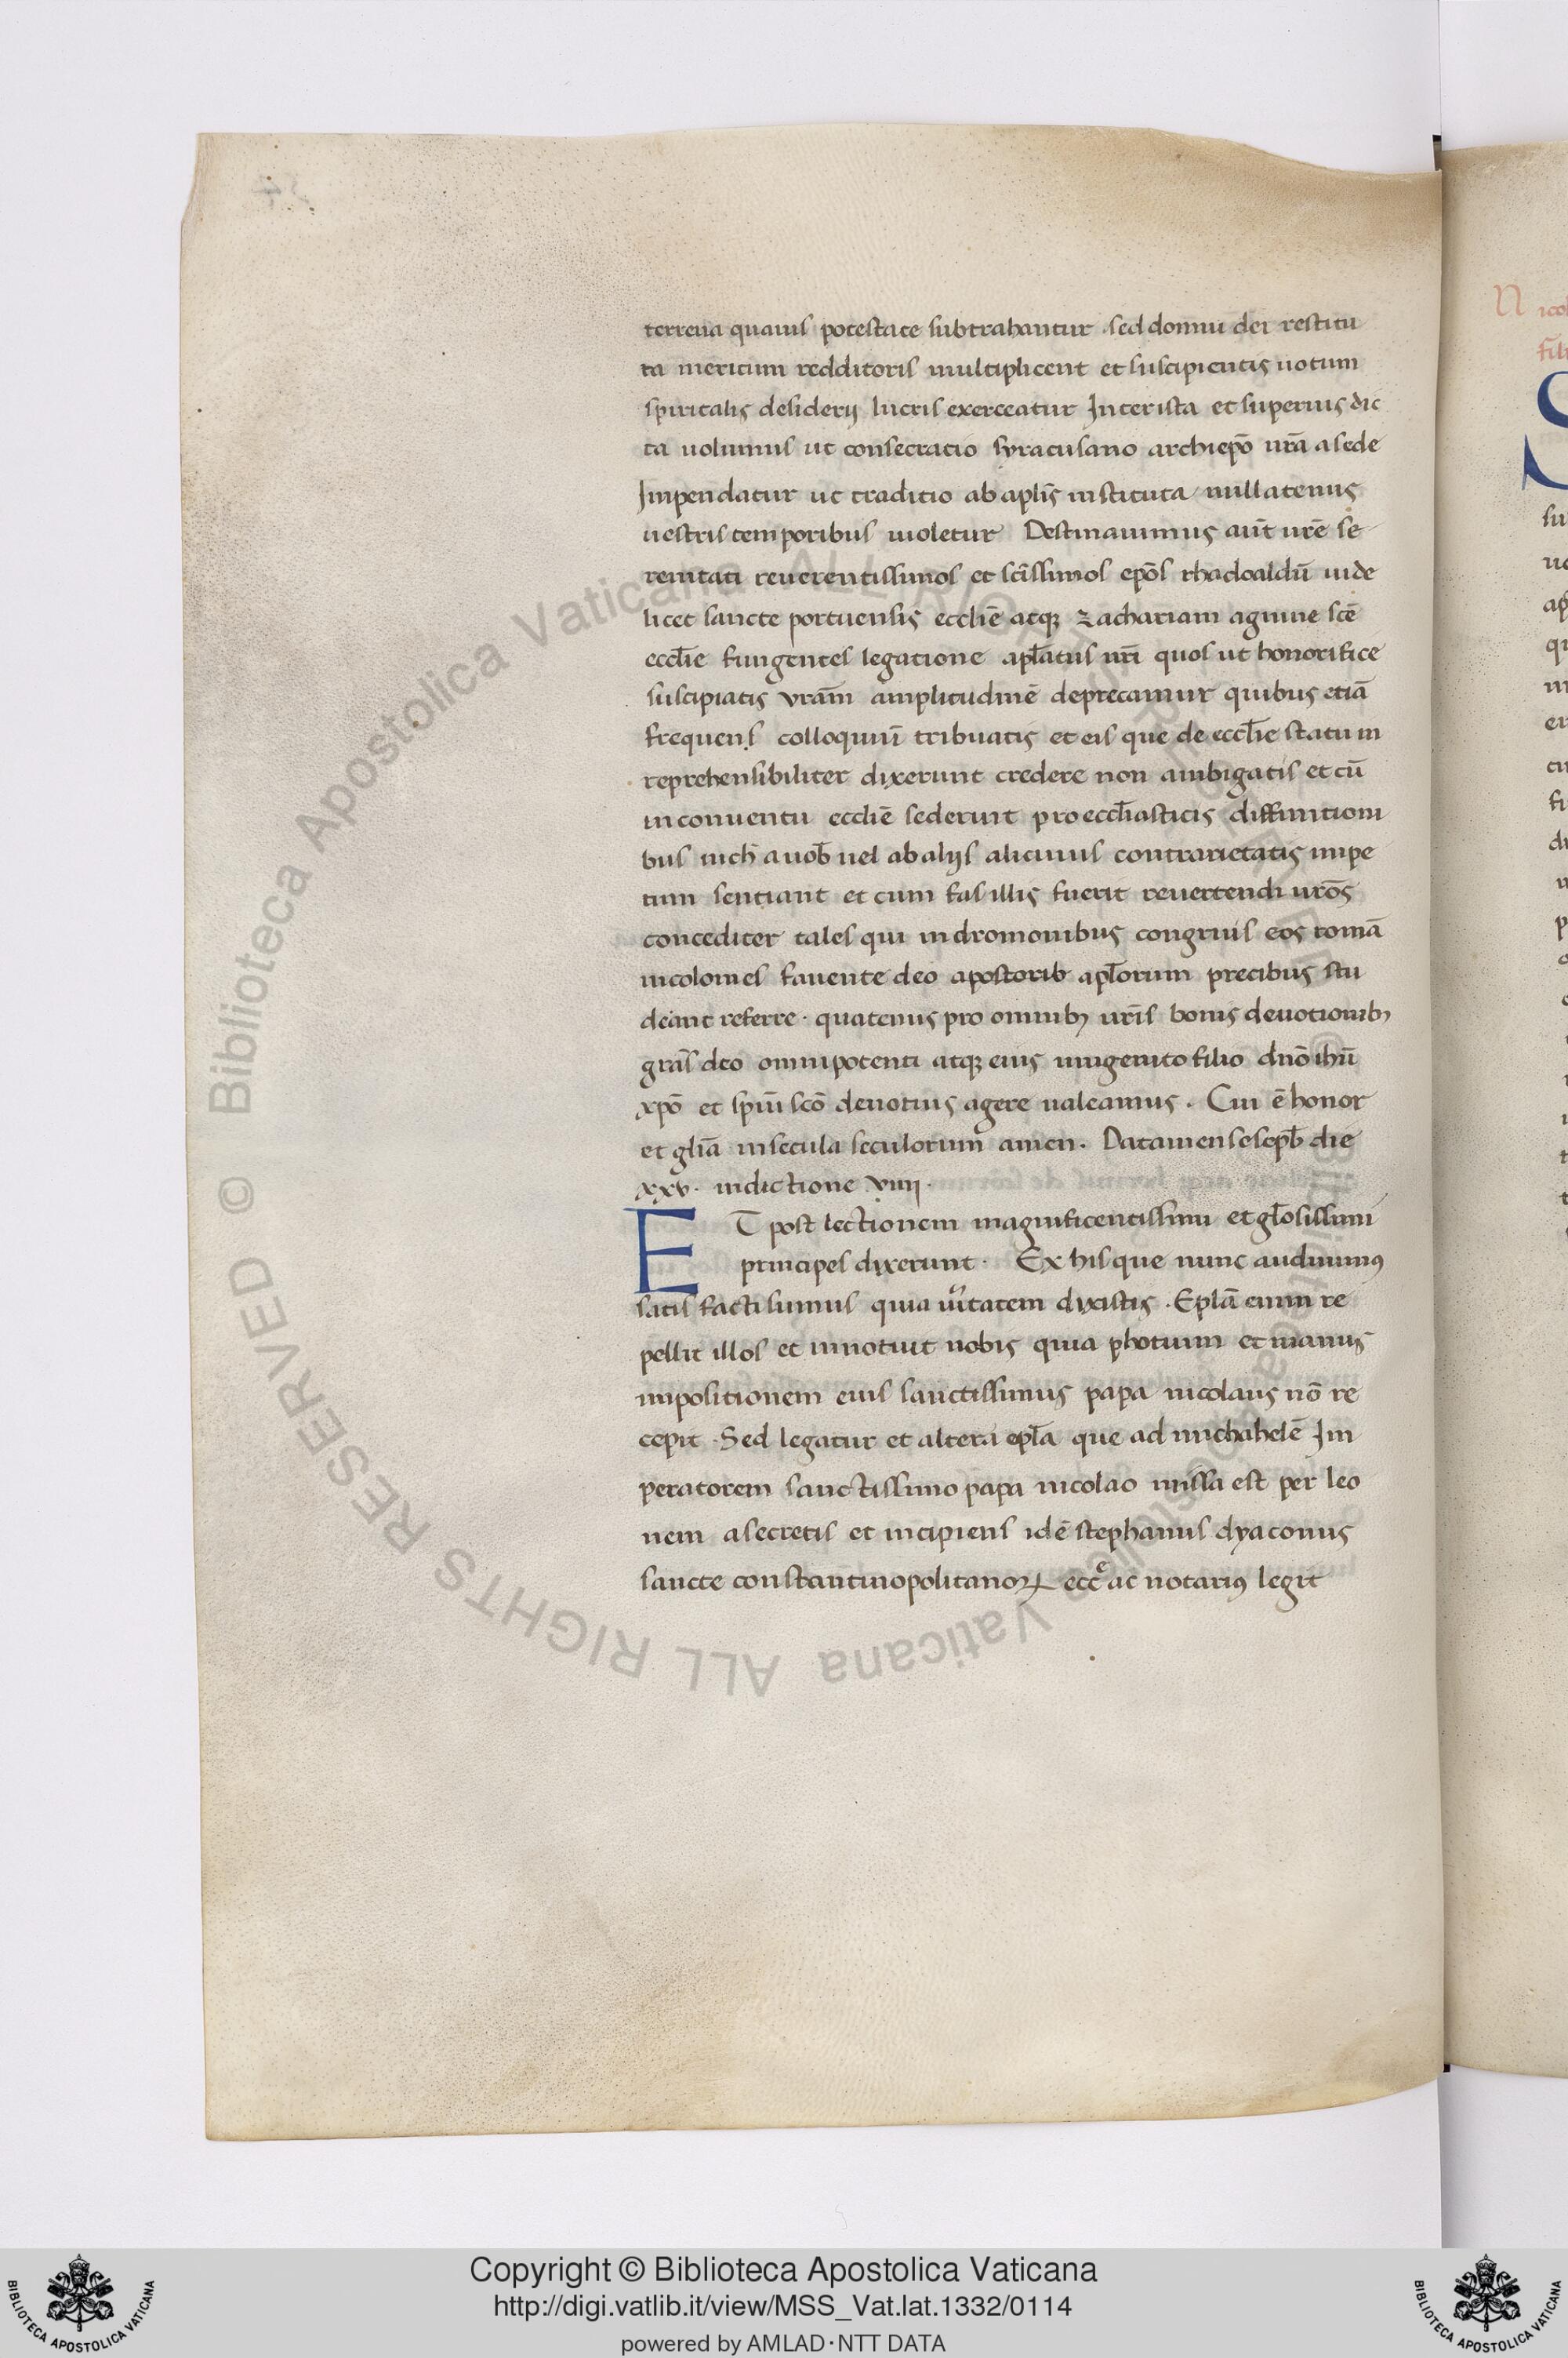 terrena quauis potestate subtrahantur sed domui dei restitu
ta meritum redditoris multiplicent et suscipientis uotum
spiritalis desiderij lucris exerceatur Inter ista et superius dic
ta uolumus ut consecratio syracusano archiepō nr̄a a sede
Impendatur ut traditio ab aplīs instituta nullatenus
nostris temporibus uioletur Destinauimus aūt ur̄e se
renitati reuerentissimos et sc̄issimos ep̄os rhadoaldū uide
licet sancte portuensis eccliē atq; zachariam agnine scē
eccl̄ie fungentes legatione apl̄atus nr̄i quos ut honorifice
suscipiatis vrām amplitudinē deprecamur quibus etiā
frequens colloquiū tribuatis et eis que de eccl̄ie statu in
reprehensibiliter dixerunt credere non ambigatis et cū
in conuentu eccliē sederint pro eccl̄iasticis diffinitioni
bus nich̄ a uob̄ uel ab alijs alicuius contrarietatis impe
tum sentiant et cum fas illis fuerit reuertendi ur̄os
concediter tales qui in dromonibus congruis eos romā
incolomes fauente deo apostorib apl̄orum precibus stu
deant referre · quatenus pro omnib; ur̄is bonis deuotionib;
grās deo omnipotenti atq; eius unigenito filio dnō ihū
xpō et spiū scō deuotius agere ualeamus . Cui ē honor
et glīa in secula seculorum amen. Data mense sepb̄ die
xxv · indictione viiij .
ET post lectionem magnificentissimi et gl̄osissimi
principes dixerunt · Ex his que nunc audiuimus
satis facti sumus quia ūitatem dixistis . Eplā enim re
pellit illos et innotuit nobis quia photium et manus
impositionem eius sanctissimus papa nicolaus nō re
cepit . Sed legatur et altera epl̄a que ad michahelē Im
peratorem sanctissimo papa nicolao missa est per leo
nem a secretis et incipiens idē stephanus dyaconus
sancte constantinopolitanoꝝ ecc̄e ac notarius legit
© Biblioteca Apostolica Vaticana ALL RIGHTS RESERVED
Copyright © Biblioteca Apostolica Vaticana
http://digi.vatlib.it/view/MSS_Vat.lat.1332/0114
powered by AMLAD·NTT DATA
BIBLIOTECA APOSTOLICA VATICANA
BIBLIOTECA APOSTOLICA VATICANA